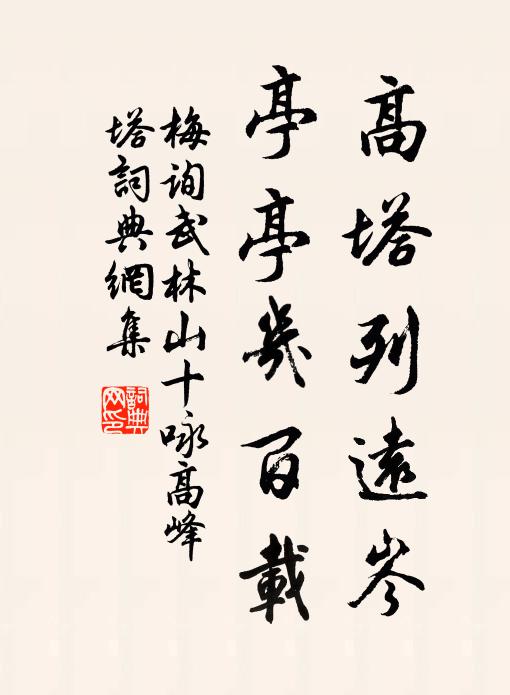 高塔列遠岑
亭亭幾百載
梅詢武林山十咏高峰
塔詞典網集
詞典网印